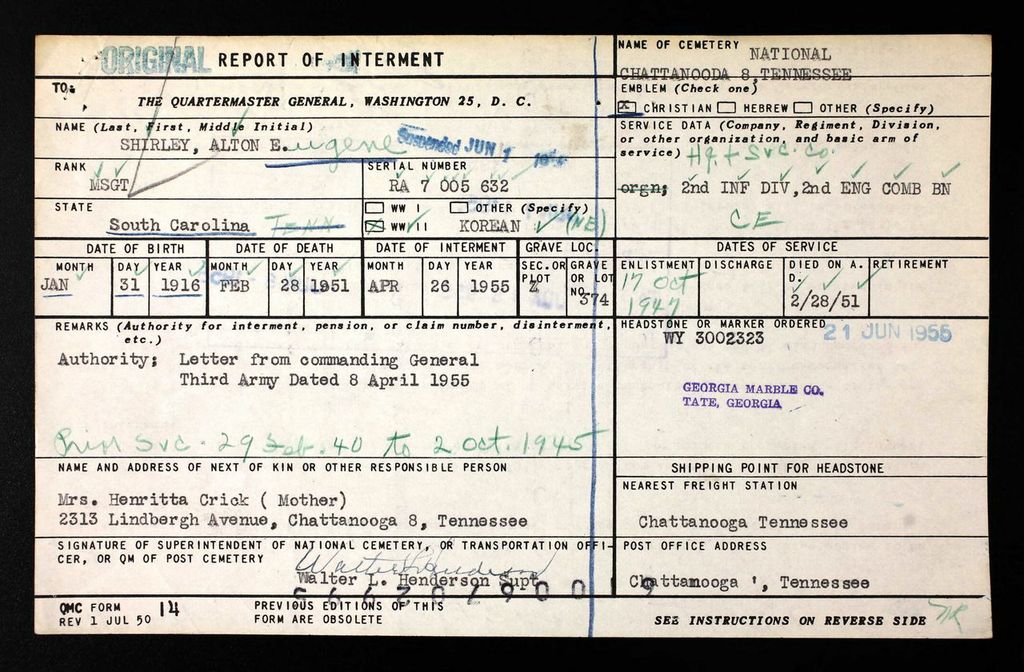 ORIGINAL REPORT OF INTERMENT
NAME OF CEMETERY NATIONAL
CHATTANOODA 8, TENNESSEE
TO:
THE QUARTERMASTER GENERAL, WASHINGTON 25, D. C.
EMBLEM (Check one)
X CHRISTIAN HEBREW OTHER (Specify)
NAME (Last, First, Middle Initial)
SHIRLEY, ALTON E.ugene
Suspended JUN 1
SERVICE DATA (Company, Regiment, Division,
or other organization, and basic arm of
service) Hq + Svc. Co.
orgn; 2nd INF DIV, 2nd ENG COMB BN
CE
RANK
MSGT
SERIAL NUMBER
RA 7 005 632
STATE
South Carolina Tenn
WW I OTHER (Specify)
X WW II KOREAN (NE)
DATE OF BIRTH DATE OF DEATH DATE OF INTERMENT GRAVE LOC. DATES OF SERVICE
MONTH DAY YEAR MONTH DAY YEAR MONTH DAY YEAR SEC. OR PLOT GRAVE OR LOT NO. ENLISTMENT DISCHARGE DIED ON A. D. RETIREMENT
JAN 31 1916 FEB 28 1951 APR 26 1955 Z 374 17 Oct 1947 2/28/51
REMARKS (Authority for interment, pension, or claim number, disinterment,
etc.)
Authority; Letter from commanding General
Third Army Dated 8 April 1955
Prior Svc. 29 Feb. 40 to 2 Oct. 1945
HEADSTONE OR MARKER ORDERED
WY 3002323 21 JUN 1955
GEORGIA MARBLE CO.
TATE, GEORGIA
NAME AND ADDRESS OF NEXT OF KIN OR OTHER RESPONSIBLE PERSON
Mrs. Henritta Crick ( Mother)
2313 Lindbergh Avenue, Chattanooga 8, Tennessee
SHIPPING POINT FOR HEADSTONE
NEAREST FREIGHT STATION
Chattanooga Tennessee
SIGNATURE OF SUPERINTENDENT OF NATIONAL CEMETERY, OR TRANSPORTATION OFFI-
CER, OR QM OF POST CEMETERY
Walter L. Henderson
Walter L. Henderson Supt
POST OFFICE ADDRESS
Chattamooga ', Tennessee
QMC FORM 14
REV 1 JUL 50
PREVIOUS EDITIONS OF THIS
FORM ARE OBSOLETE
SEE INSTRUCTIONS ON REVERSE SIDE